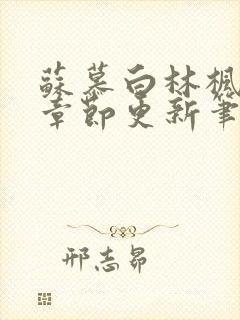 蘇慕白林楓
章節更新筆
邢志昂